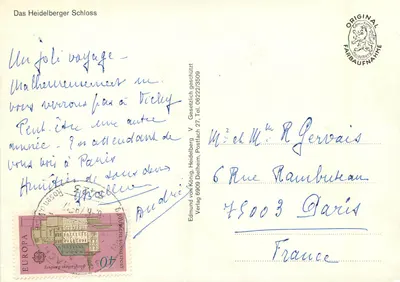 Das Heidelberger Schloss
ORIGINAL
FARBAUFNAHME
Un joli voyage -
Malheureusement ne
vous verrons pas à Vichy
Peut-être une autre
année. En attendant de
vous voir à Paris
de tous deux
André
Edmund von König, Heidelberg V Gesetzlich geschützt
Verlag 6909 Dielheim, Postfach 27, Tel. 06222/3509
M. et Mme R Gervais
6 Rue Rambuteau
75003 Paris
France
EUROPA
40